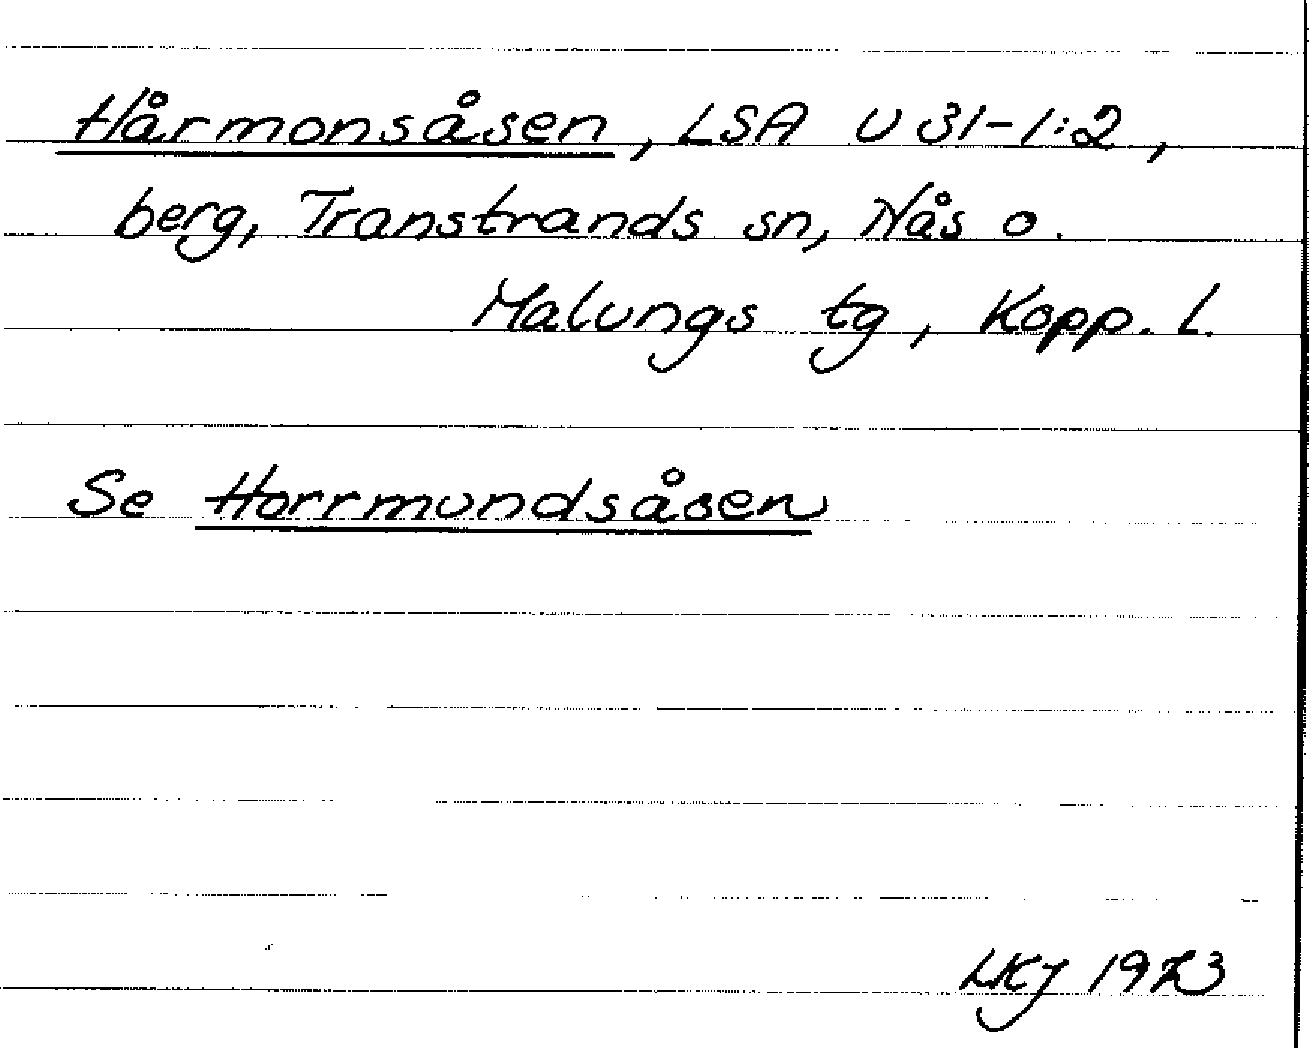 Hårmonsåsen, LSA U 31-1:2,
berg, Transtrands sn, Nås o.
Malungs tg, Kopp. l.
Se Horrmundsåsen
LKJ 1973